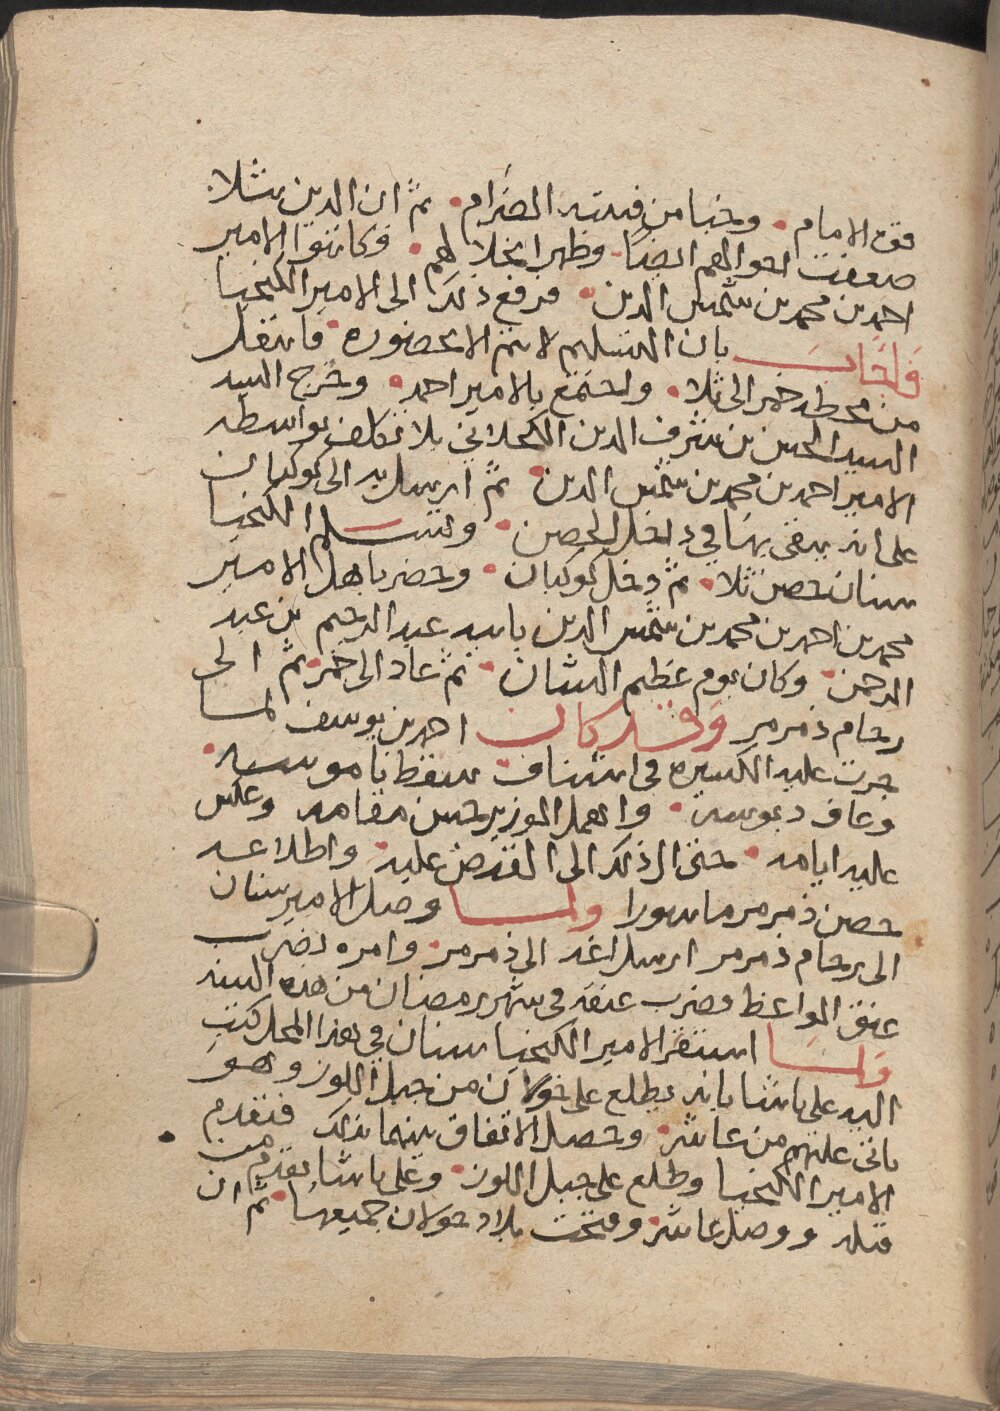 قوة الامام ۰ وخبا من فتنته الضرام ۰ ثم ان الذين بثلا
ضعفت احوالهم ايضًا ۰ وظهر انحلالهم ۰ وكاتبوا الامير
احمد بن محمد بن شمس الدين ۰ فرفع ذلك الى الامير الكيخيا
وَاجَابَ بان التسليم لا يتم الا بحضوره ۰ فانتقل
من محطة خمر الى ثلا ۰ واجتمع بالامير احمد ۰ وخرج اليه
السيد الحسن بن شرف الدين الكحلاني بلا تكلف بواسطة
الامير احمد بن محمد بن شمس الدين ۰ ثم ارسل به الى كوكبان
على انه يبقى بها في داخل الحصن ۰ وتسلم الكيخيا
سنان حصن ثلا ۰ ثم دخل كوكبان ۰ وحضر باهل الامير
محمد بن احمد بن محمد بن شمس الدين بابنه عبد الرحيم بن عبد
الرحمن ۰ وكان يوم عظيم الشان ۰ ثم عاد الى خمر ۰ ثم الى
رحام ذمرمر وَقد كان احمد بن يوسف لما
جرت عليه الكسيرة في سقط ناموسه ۰
وعاف دبوسه ۰ واهمل الوزير حسن مقامه وعكس
عليه ايامه ۰ حتى ال ذلك الى القبض عليه ۰ واطلاعه
حصن ذمرمر ماسورا ولما وصل الامير سنان
الى رحام ذمرمر ارسل اغه الى ذمرمر ۰ وامره بضرب
عنق الواعظ فضرب عنقه في شهر رمضان من هذه السنة
وَلما استقر الامير الكيخيا سنان في هذا المحل كتب
اليه على باشا بانه يطلع على خولان من جبل اللوز وهو
ياتي عليهم من عاشر ۰ وحصل الاتفاق بينهما بذلك فتقدم
الامير الكيخيا وطلع على جبل اللوز ۰ وعلى باشا تقدم من
قبله ووصل عاشر ۰ وفتحت بلاد خولان جميعها ۰ ثم ان